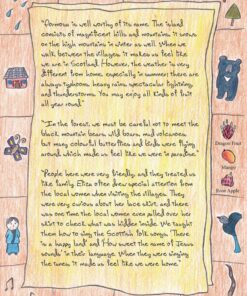 "Formosa is well worthy of its name. The island
consists of magnificent hills and mountains. It snows
on the high mountains in winter as well. When we
walk between the villages, it makes us feel like
we are in Scotland. However, the weather is very
different from home, especially in summer: there are
always typhoons, heavy rains, spectacular lightning,
and thunderstorms. You may enjoy all kinds of fruit
all year round."
"In the forest, we must be careful not to meet the
black mountain bears, wild boars, mud volcanoes,
but many colourful butterflies and birds were flying
around, which made us feel like we were in paradise."
"People here were very friendly, and they treated us
like family. Eliza often drew special attention from
the local women when visiting the villages. They
were very curious about her lace skirt, and there
was one time the local women even pulled over her
skirt to check what was hidden inside. We taught
them how to sing the Scottish folk songs, 'There
is a happy land' and 'How sweet the name of Jesus
sounds' in their language. When they were singing
the tunes, it made us feel like we were home."
Dragon Fruit
Mango
Rose Apple